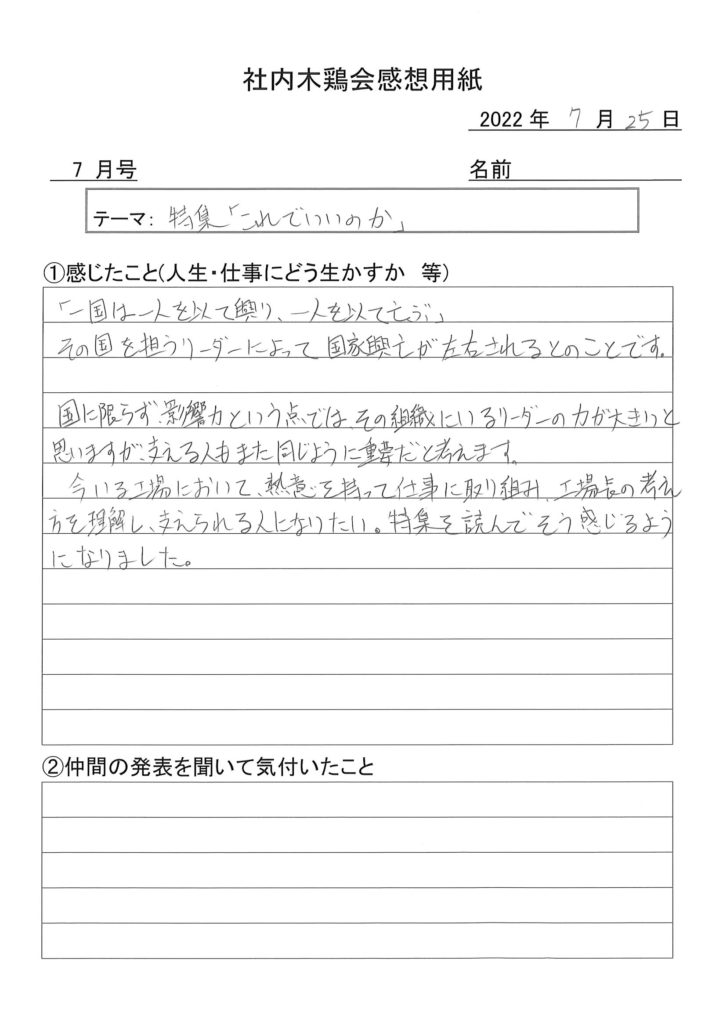 社内木鶏会感想用紙
2022 年 7 月 25 日
7 月号
名前
テーマ: 特集「これでいいのか」
①感じたこと(人生・仕事にどう生かすか 等)
「一国は一人を以て興り、一人を以て亡ぶ」
その国を担うリーダーによって国家興亡が左右されるとのことです。
国に限らず、影響力という点では、その組織にいるリーダーの力が大きいと
思いますが、支える人もまた同じように重要だと考えます。
今いる工場において、熱意を持って仕事に取り組み、工場長の考え
方を理解し、支えられる人になりたい。特集を読んでそう感じるよう
になりました。
②仲間の発表を聞いて気付いたこと